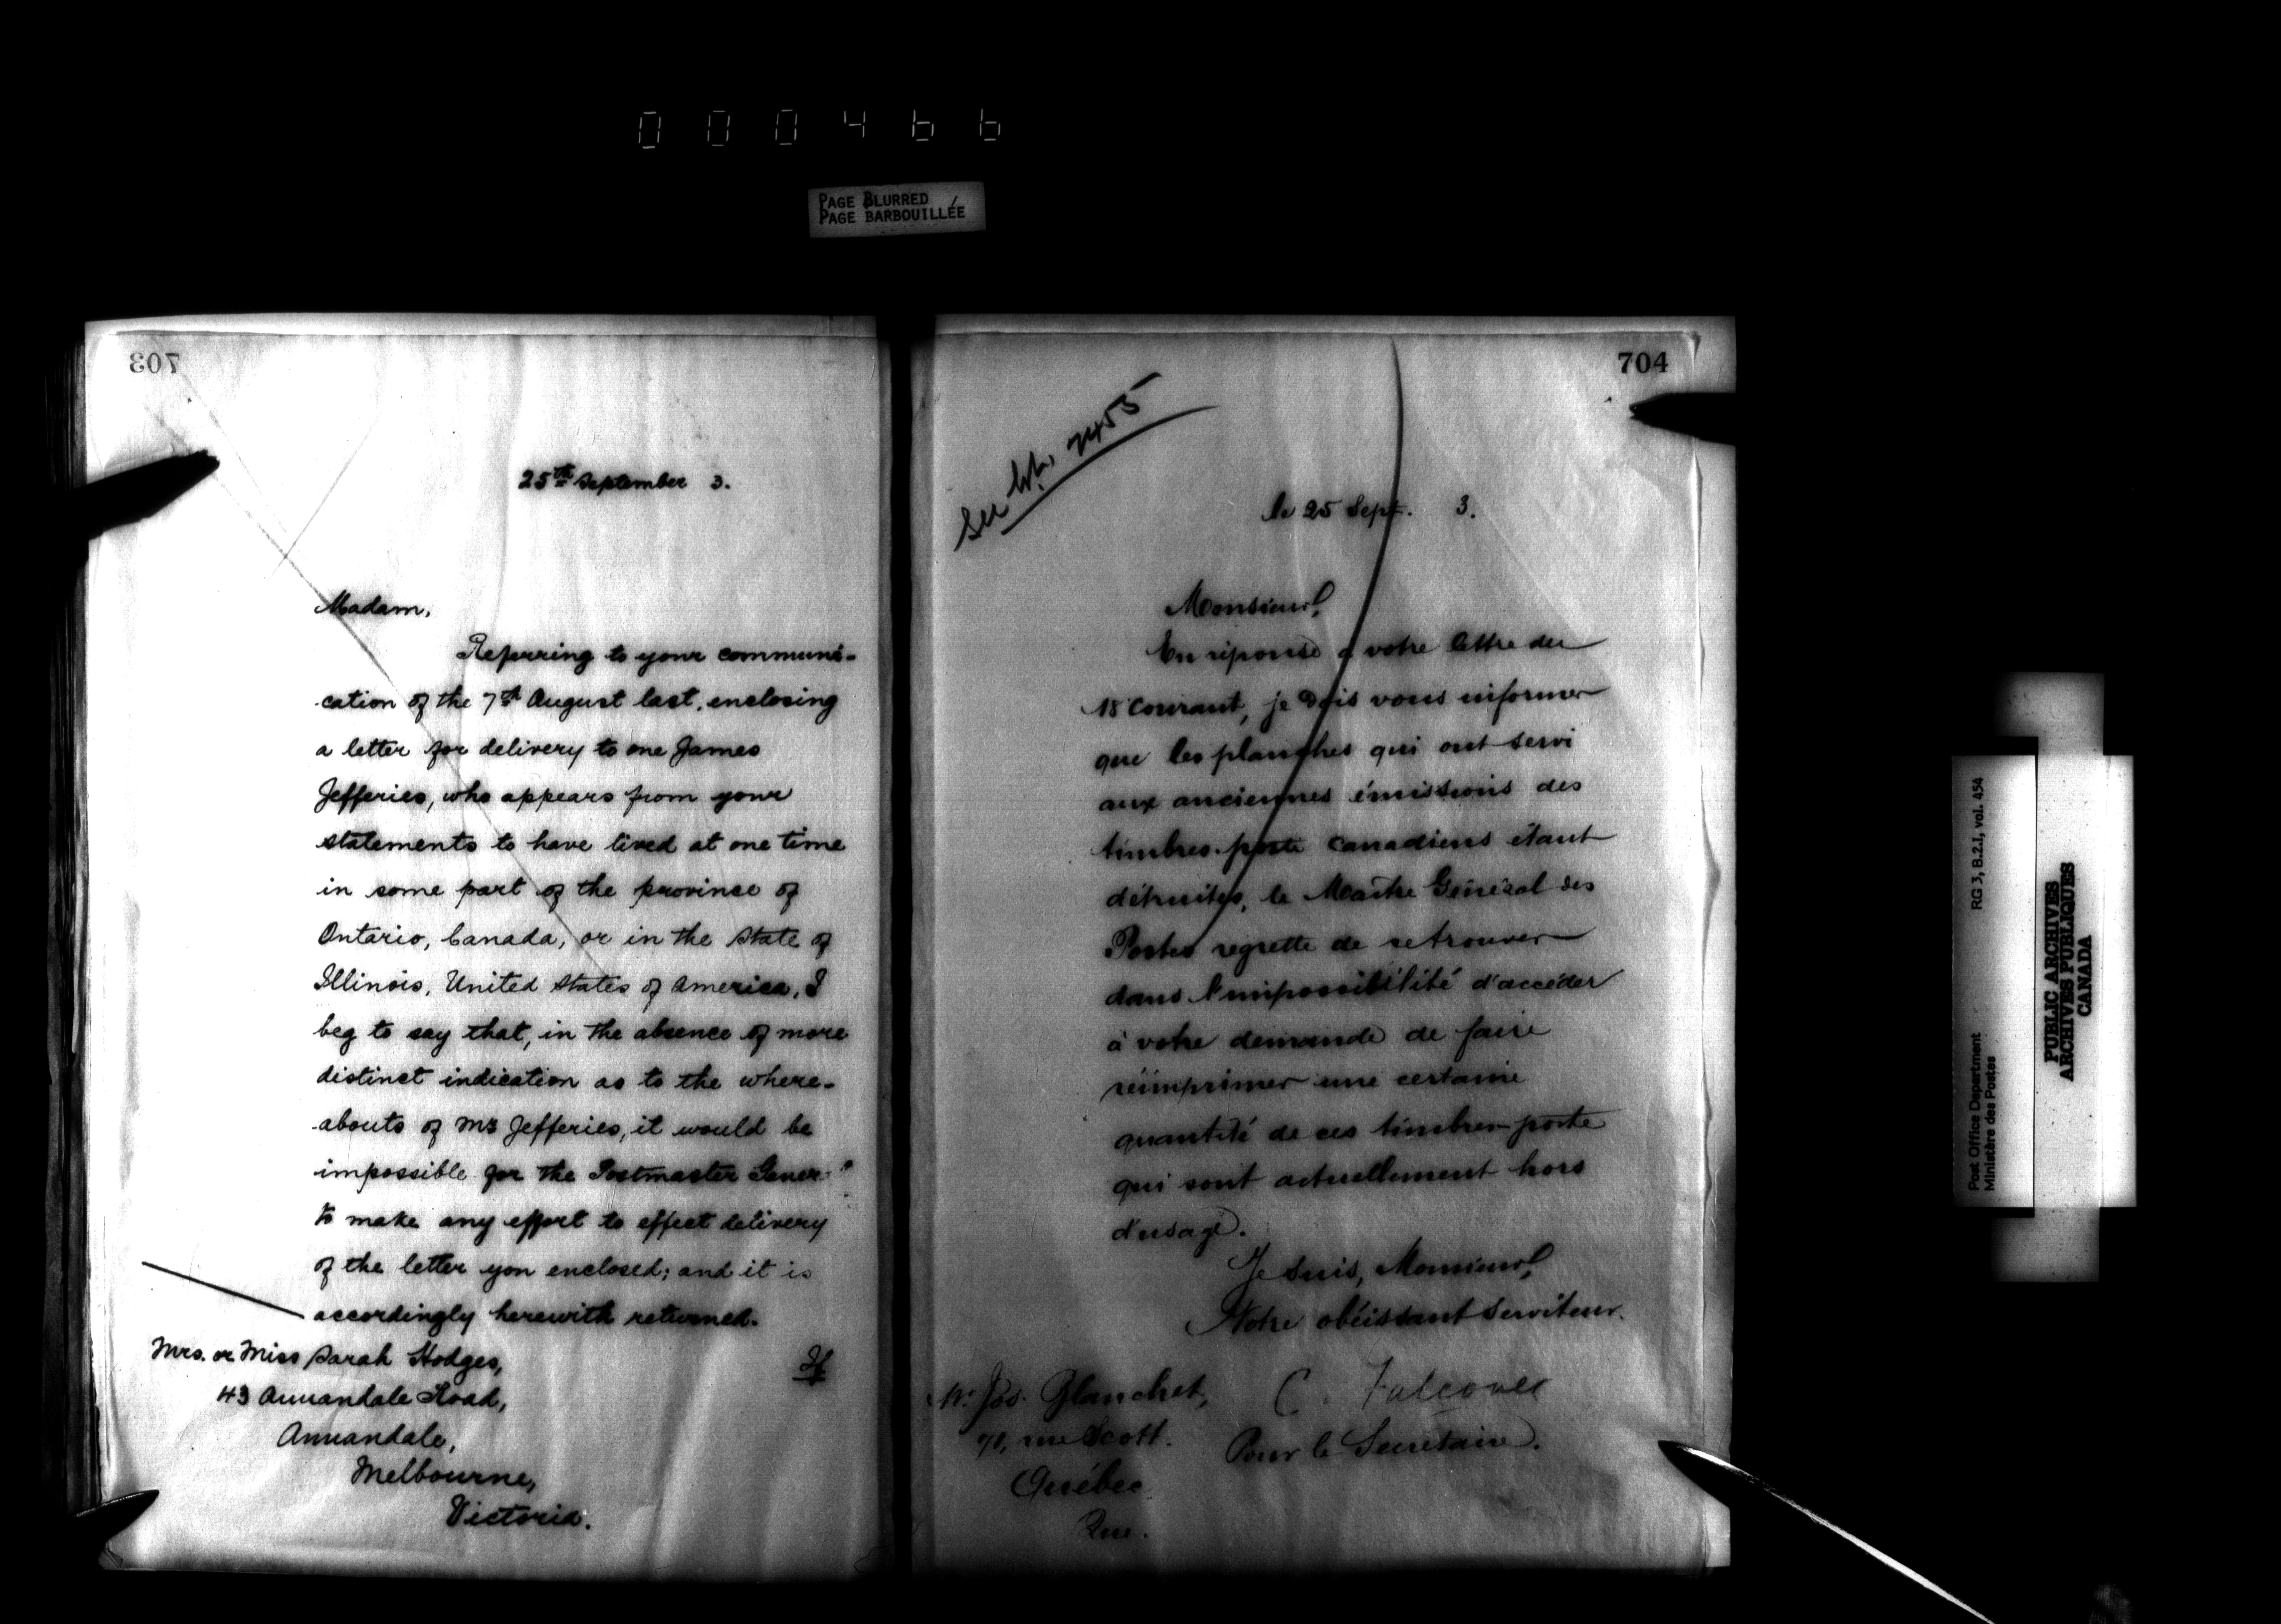 000466
PAGE BLURRED
PAGE BARBOUILLÉE
703
25th September 3.
Madam,
Referring to your communi-
cation of the 7th August last, enclosing
a letter for delivery to one James
Jefferies, who appears from your
statements to have lived at one time
in some part of the province of
Ontario, Canada, or in the State of
Illinois, United States of America, I
beg to say that, in the absence of more
distinct indication as to the where-
abouts of Mr Jefferies, it would be
impossible for the Postmaster Gener
to make any effort to effect delivery
of the letter you enclosed; and it is
accordingly herewith returned.
If
Mrs. or Miss Sarah Hodges,
43 Annandale Road,
Annandale,
Melbourne,
Victoria.
704
See let. 7455
le 25 Sept. 3.
Monsieur,
En réponse à votre lettre du
18 courant, je dois vous informer
que les planches qui ont servi
aux anciennes émissions des
timbres-poste canadiens étant
détruites, le Maître Général des
Postes regrette de se trouver
dans l'impossibilité d'accéder
à votre demande de faire
réimprimer une certaine
quantité de ces timbres-poste
qui sont actuellement hors
d'usage.
Je suis, Monsieur,
Votre obéissant serviteur.
C. Falconer
Pour le Secrétaire.
M. Jos. Blanchet,
71, rue Scott.
Québec
Que.
Post Office Department RG 3, B.2.I, vol. 454
Ministère des Postes
PUBLIC ARCHIVES
ARCHIVES PUBLIQUES
CANADA